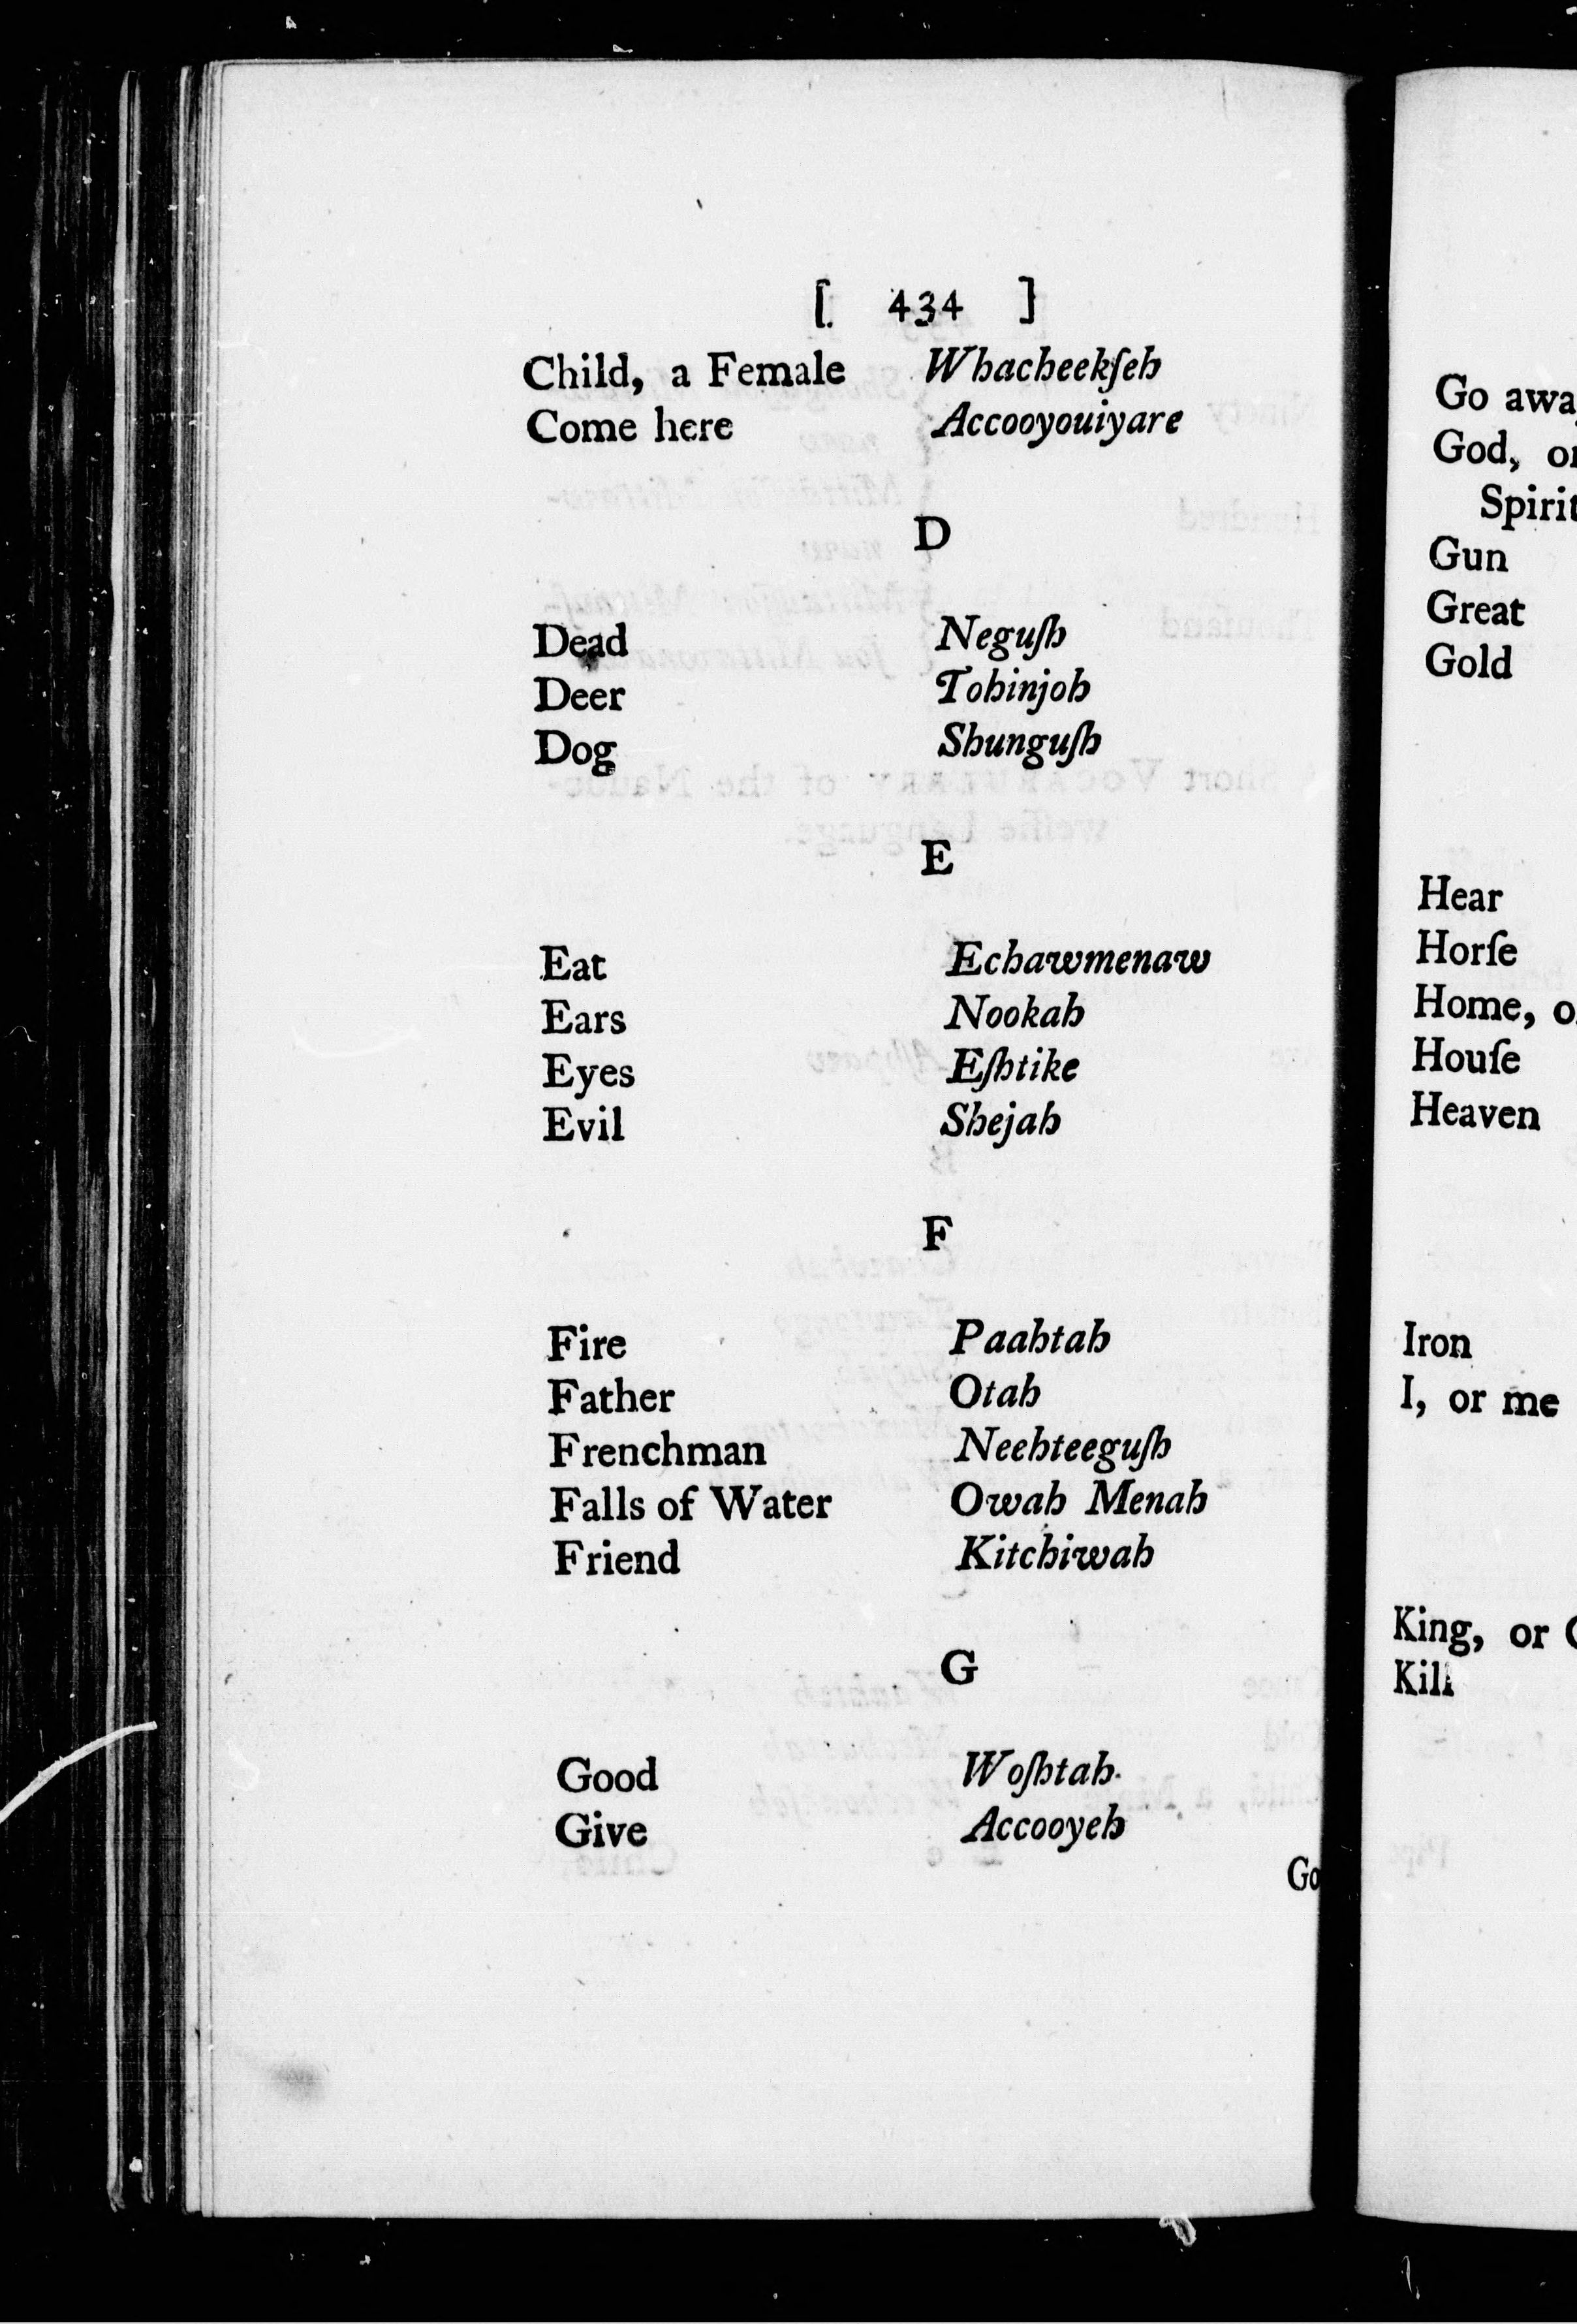 [ 434 ]
Child, a Female Whacheekſeh
Come here Accooyouiyare
D
Dead Neguſh
Deer Tohinjoh
Dog Shunguſh
E
Eat Echawmenaw
Ears Nookah
Eyes Eſhtike
Evil Shejah
F
Fire Paahtah
Father Otah
Frenchman Neehteeguſh
Falls of Water Owah Menah
Friend Kitchiwah
G
Good Woſhtah
Give Accooyeh
Go
Go
God,
Spirit
Gun
Great
Gold
Hear
Horſe
Home,
Houſe
Heaven
Iron
I, or me
King, or
Kill